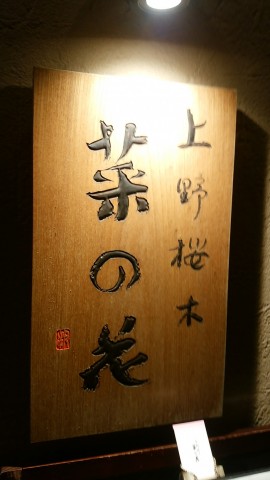 上野桜木
菜の花